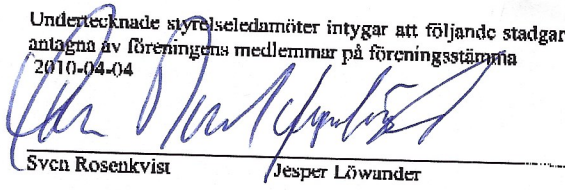 Undertecknade styrelseledamöter intygar att följande stadgar
antagna av föreningens medlemmar på föreningsstämma
2010-04-04
Sven Rosenkvist Jesper Löwander